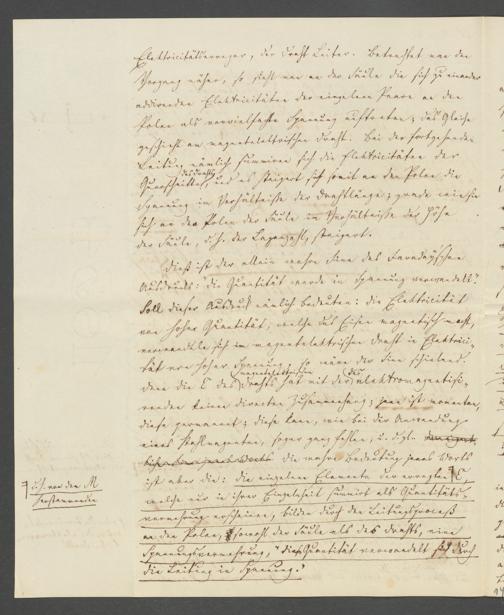 Elektricitätserreger, der Draht Leiter. Betrachtet man den
Vorgang näher, so sieht man an der Säule die sich zu einander
addirenden Elektricitäten der einzelnen Paare an den
Polen als vervielfachte Spannung auftreten; das Gleiche
geschieht am magnetelektrischen Draht. Bei der fortgehenden
Leitung nämlich summiren sich die Elektricitäten der
Querschnitte, und es steigert sich somit an den Polen die
des Drahts
Spannung im Verhältnisse der Drahtlänge; gerade wie sie
sich an den Polen der Säule im Verhältnisse der Höhe
der Säule, d.h. der Lagenzahl, steigert.
Dieß ist der allein wahre Sinn des Faraday'schen
Ausdrucks: die Quantität werde in Spannung verwandelt.
Soll dieser Ausdruck nämlich bedeuten: die Elektricität
von hoher Quantität, welche das Eisen magnetisch macht,
verwandle sich im magnetelektrischen Draht in Elektrici-
tät von hoher Spannung, so wäre der Sinn schielend,
denn die E des Drahts hat mit der elektromagnetisi-
magnetelektrischen
renden keinen directen Zusammenhang; jene ist momentan,
diese permanent; diese kann, wie bei der Anwendung
eines Stahlmagneten, sogar ganz fehlen, u. dgl.
die wahre Bedeutung jenes Worts
ist aber die: die einzelnen Elemente der erregten E,
welche nur in ihrer Einzelheit summirt als Quantitäts-
vermehrung erscheinen, bilden durch den Leitungsproceß
an den Polen, sowohl der Säule als des Drahts, eine
Spannungsvermehrung, "die Quantität verwandelt sich durch
die Leitung in Spannung."
d.h. von dem M